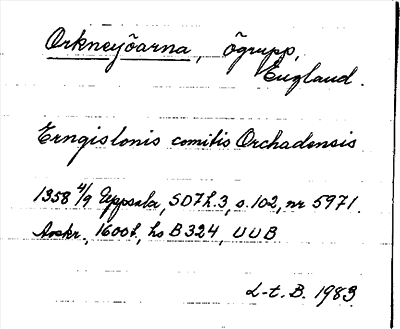 Orkneyöarna, ögrupp,
England.
Erngislonis comitis Orchadensis
1358 4/9 Uppsala, SD7h.3, s.102, nr 5971.
Avskr., 1600t, hs B 324, UUB
L-t. B. 1983